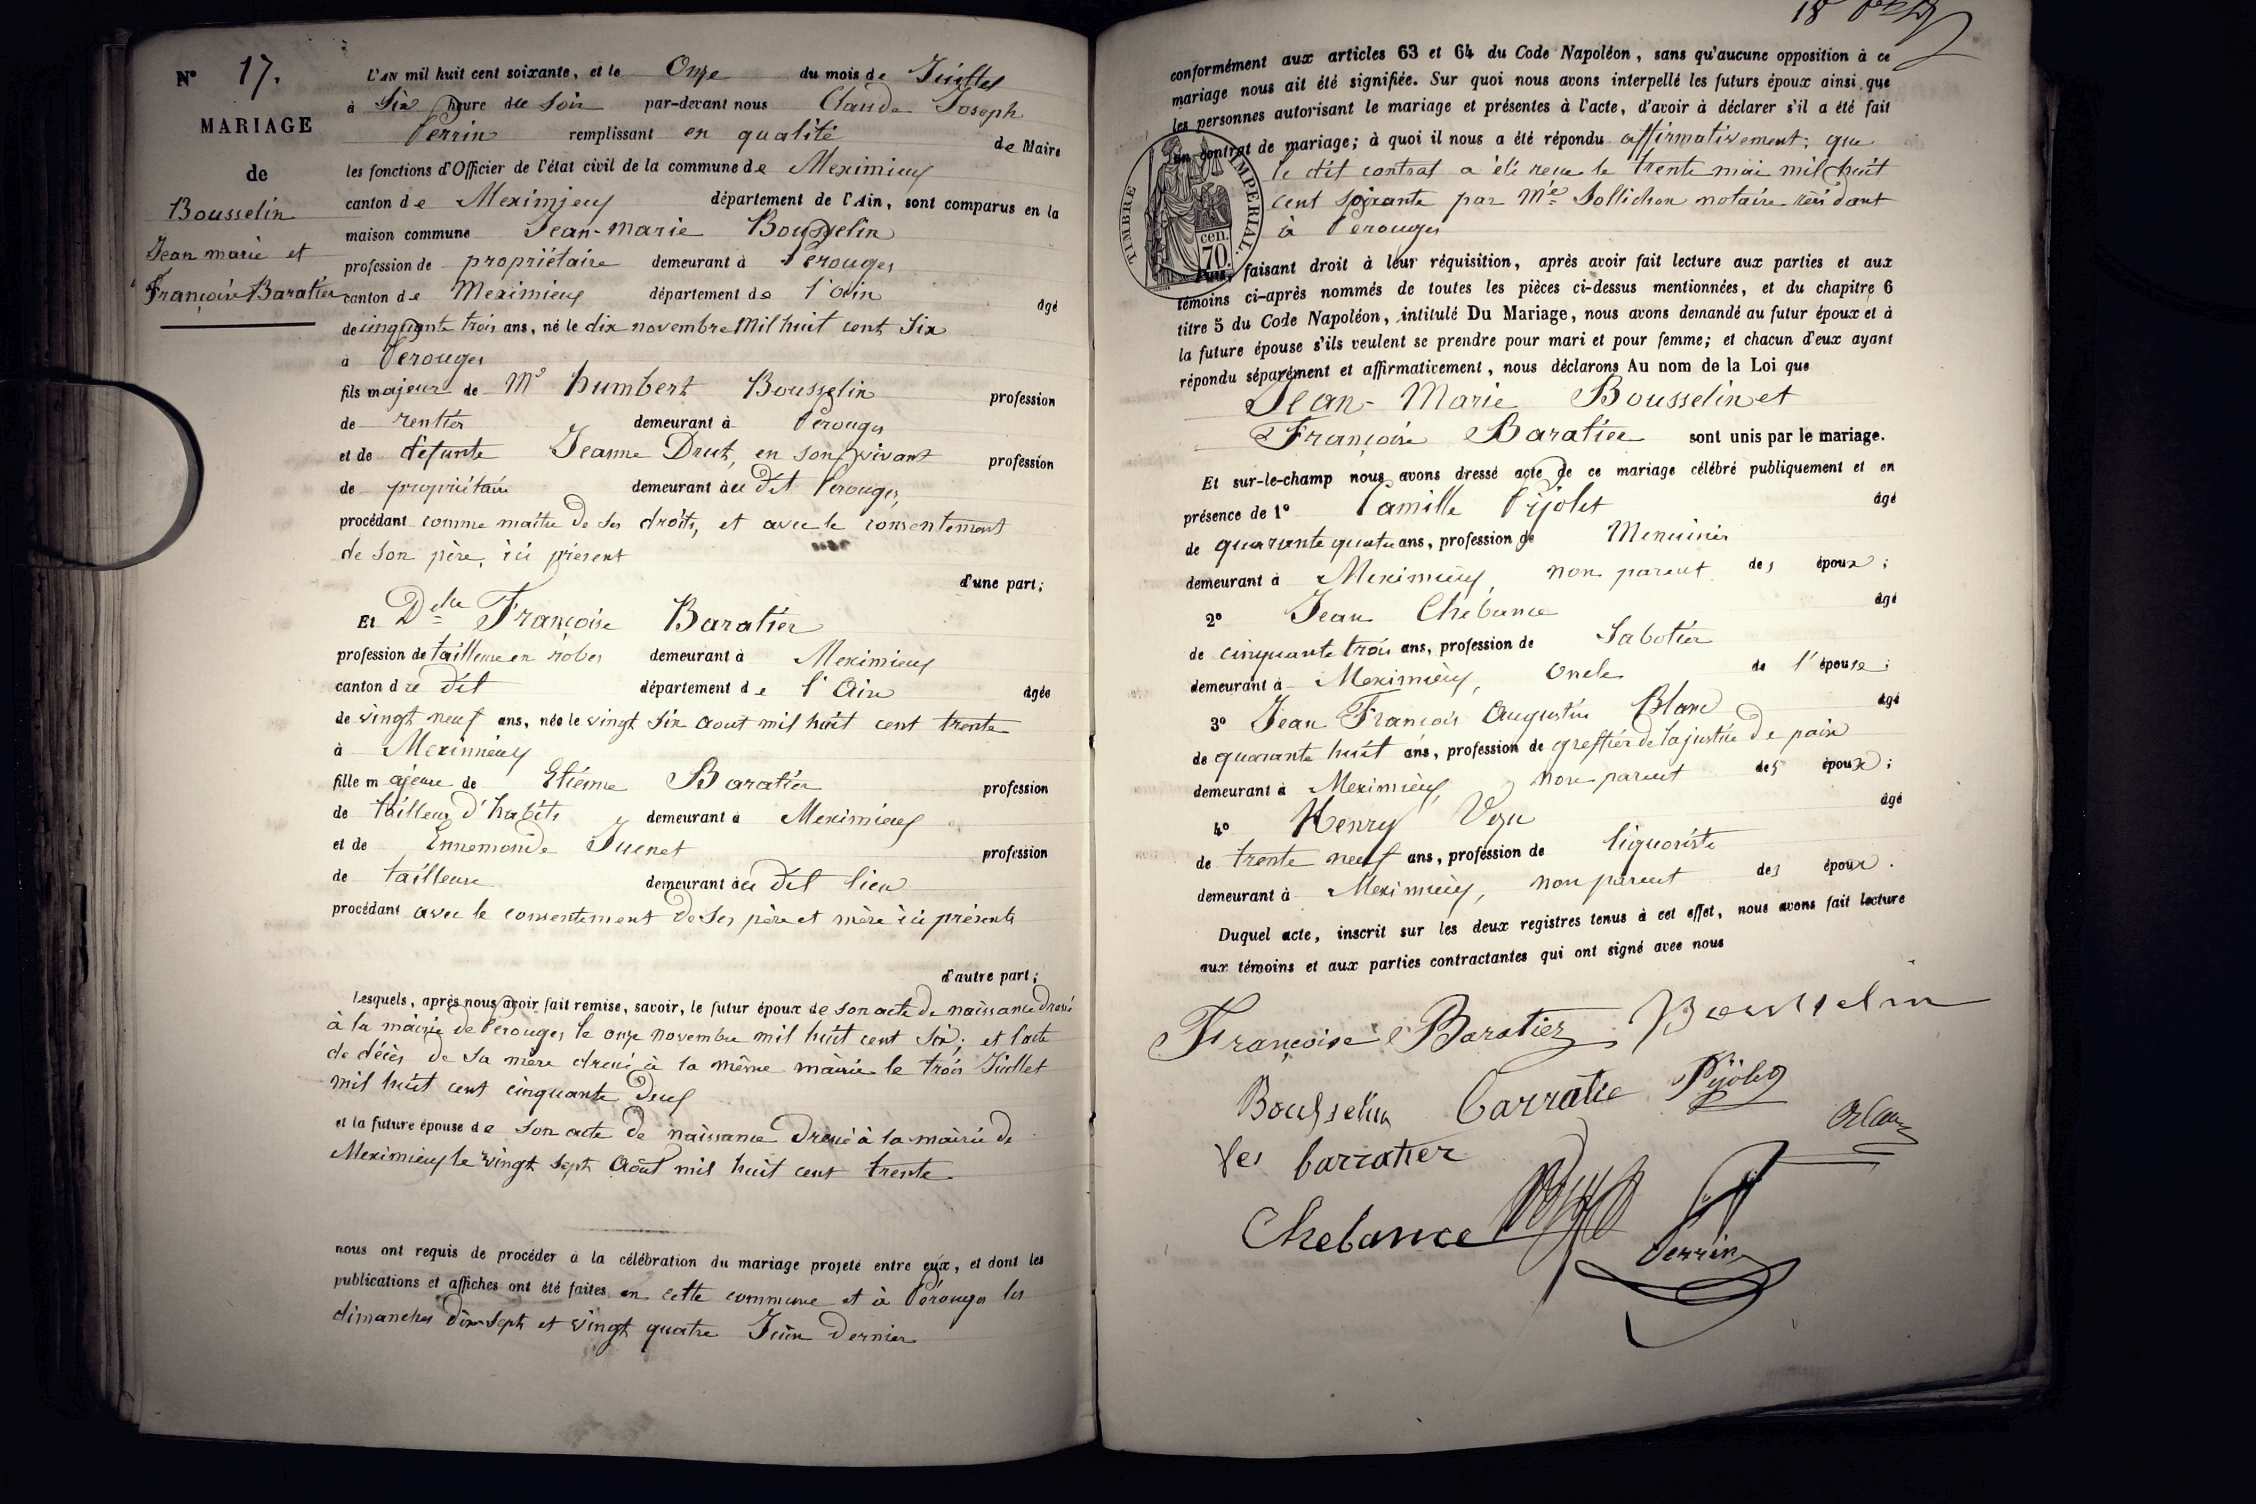 N° 17.
MARIAGE
de
Bousselin
Jean marie et
Françoise Baratier
L'AN mil huit cent soixante, et le Onze du mois de Juillet
à Six heure du soir par-devant nous Claude Joseph
Perrin remplissant en qualité de Maire
les fonctions d'Officier de l'état civil de la commune de Meximieux
canton de Meximieux département de l'Ain, sont comparus en la
maison commune Jean-marie Bousselin
profession de propriétaire demeurant à Pérouges
canton de Meximieux département de l'Ain âgé
de cinquante trois ans, né le dix novembre Mil huit cent Six
à Pérouges
fils majeur de Mr humbert Bousselin profession
de rentier demeurant à Pérouges
et de défunte Jeanne Drut, en son vivant profession
de propriétaire demeurant au dit Pérouges,
procédant comme maitre de ses droits, et avec le consentement
de son père, ici présent
d'une part;
Et Delle Françoise Baratier
profession de tailleuse en robes demeurant à Meximieux
canton du dit département de l'Ain âgée
de vingt neuf ans, née le vingt six aout mil huit cent trente
à Meximieux
fille majeure de Etienne Baratier profession
de tailleur d'habits demeurant à Meximieux
et de Ennemonde Juenet profession
de tailleuse demeurant au dit lieu
procédant avec le consentement de ses père et mère ici présents
d'autre part;
Lesquels, après nous avoir fait remise, savoir, le futur époux de son acte de naissance dressé
à la mairie de Pérouges le onze novembre mil huit cent Six; et l'acte
de décès de sa mère dressé à la même mairie le trois Juillet
mil huit cent cinquante deux
et la future épouse de son acte de naissance dressé à la mairie de
Meximieux le vingt sept Août mil huit cent trente
nous ont requis de procéder à la célébration du mariage projeté entre eux, et dont les
publications et affiches ont été faites en cette commune et à Pérouges les
dimanches dix sept et vingt quatre Juin dernier
18
conformément aux articles 63 et 64 du Code Napoléon, sans qu'aucune opposition à ce
mariage nous ait été signifiée. Sur quoi nous avons interpellé les futurs époux ainsi que
les personnes autorisant le mariage et présentes à l'acte, d'avoir à déclarer s'il a été fait
un contrat de mariage; à quoi il nous a été répondu affirmativement; que
le dit contrat a été reçu le trente mai mil huit
cent soixante par Me Sollichon notaire résidant
à Pérouges
TIMBRE IMPERIAL.
cen.
70.
Puis, faisant droit à leur réquisition, après avoir fait lecture aux parties et aux
témoins ci-après nommés de toutes les pièces ci-dessus mentionnées, et du chapitre 6
titre 5 du Code Napoléon, intitulé Du Mariage, nous avons demandé au futur époux et à
la future épouse s'ils veulent se prendre pour mari et pour femme; et chacun d'eux ayant
répondu séparément et affirmativement, nous déclarons Au nom de la Loi que
Jean-Marie Bousselin et
Françoise Baratier sont unis par le mariage.
Et sur-le-champ nous avons dressé acte de ce mariage célébré publiquement et en
présence de 1° Camille Pijolet âgé
de quarante quatre ans, profession de Menuisier
demeurant à Meximieux, non parent des époux;
2° Jean Chebance âgé
de cinquante trois ans, profession de Sabotier
demeurant à Meximieux, oncle de l'épouse;
3° Jean François Augustin Blanc âgé
de quarante huit ans, profession de greffier de la justice de paix
demeurant à Meximieux, non parent des époux;
4° Henry Vezu âgé
de trente neuf ans, profession de liquoriste
demeurant à Meximieux, non parent des époux.
Duquel acte, inscrit sur les deux registres tenus à cet effet, nous avons fait lecture
aux témoins et aux parties contractantes qui ont signé avec nous
Françoise Baratier Bousselin
Bousselin Barratie Pijolet
barratier Blanc
Chebance
Perrin